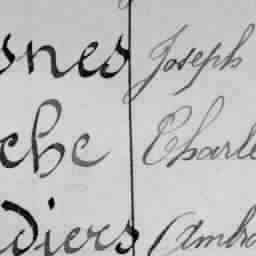 snes Joseph
che Charle
diers Ambro